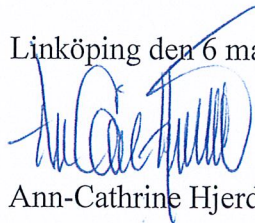 Linköping den 6 ma
Ann-Cathrine Hjerd